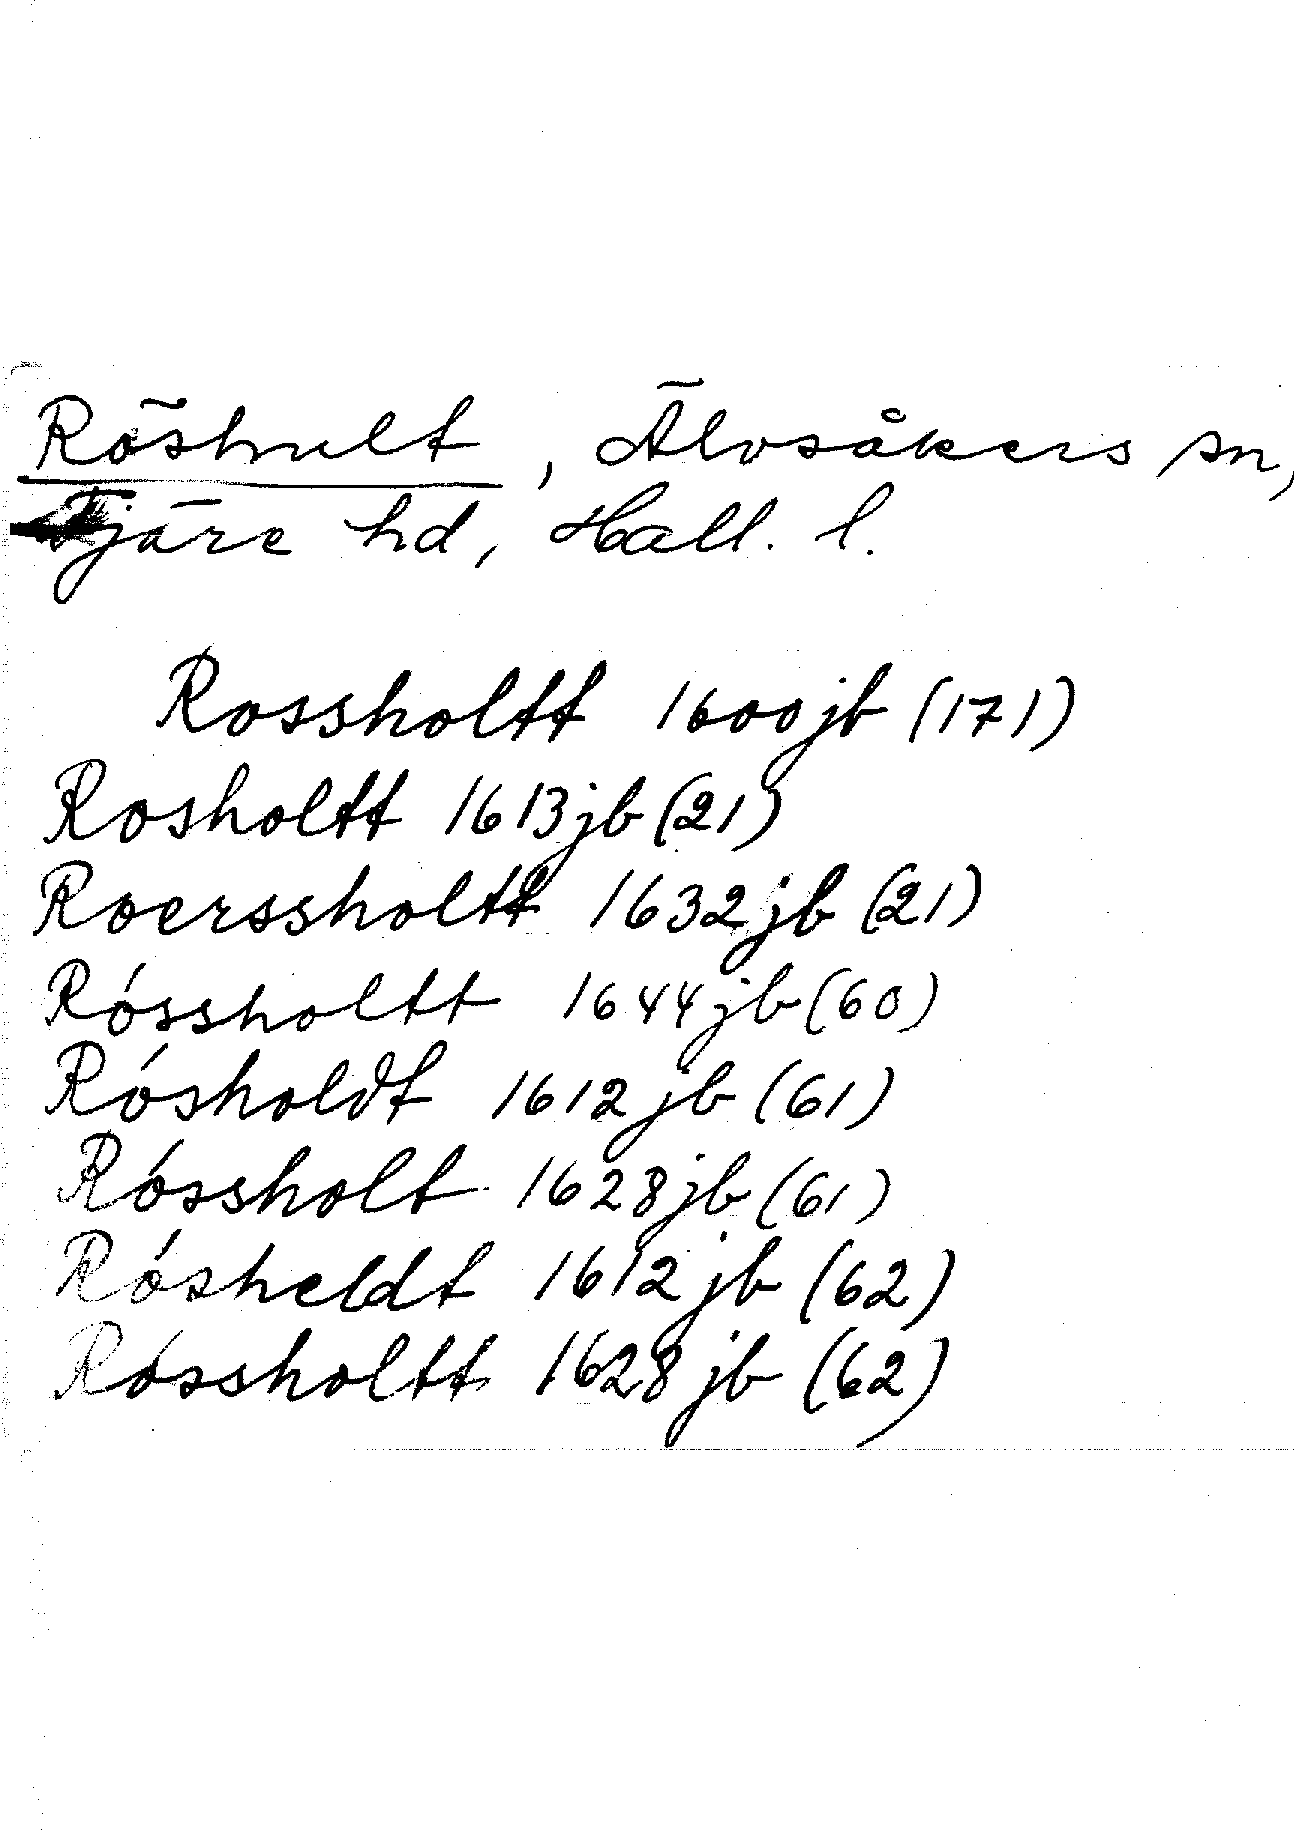 Röshult, Älvsåkers sn,
Fjäre hd, Hall. l.
Rossholtt 1600 jb (171)
Rosholtt 1613 jb (21)
Roerssholtt 1632 jb (21)
Róssholtt 1644 jb (60)
Rósholdt 1612 jb (61)
Róssholt 1628 jb (61)
Rósheldt 1612 jb (62)
Róssholtt 1628 jb (62)